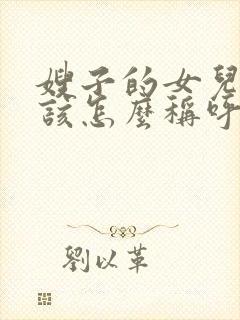 嫂子的女兒
該怎麼稱呼
劉以革